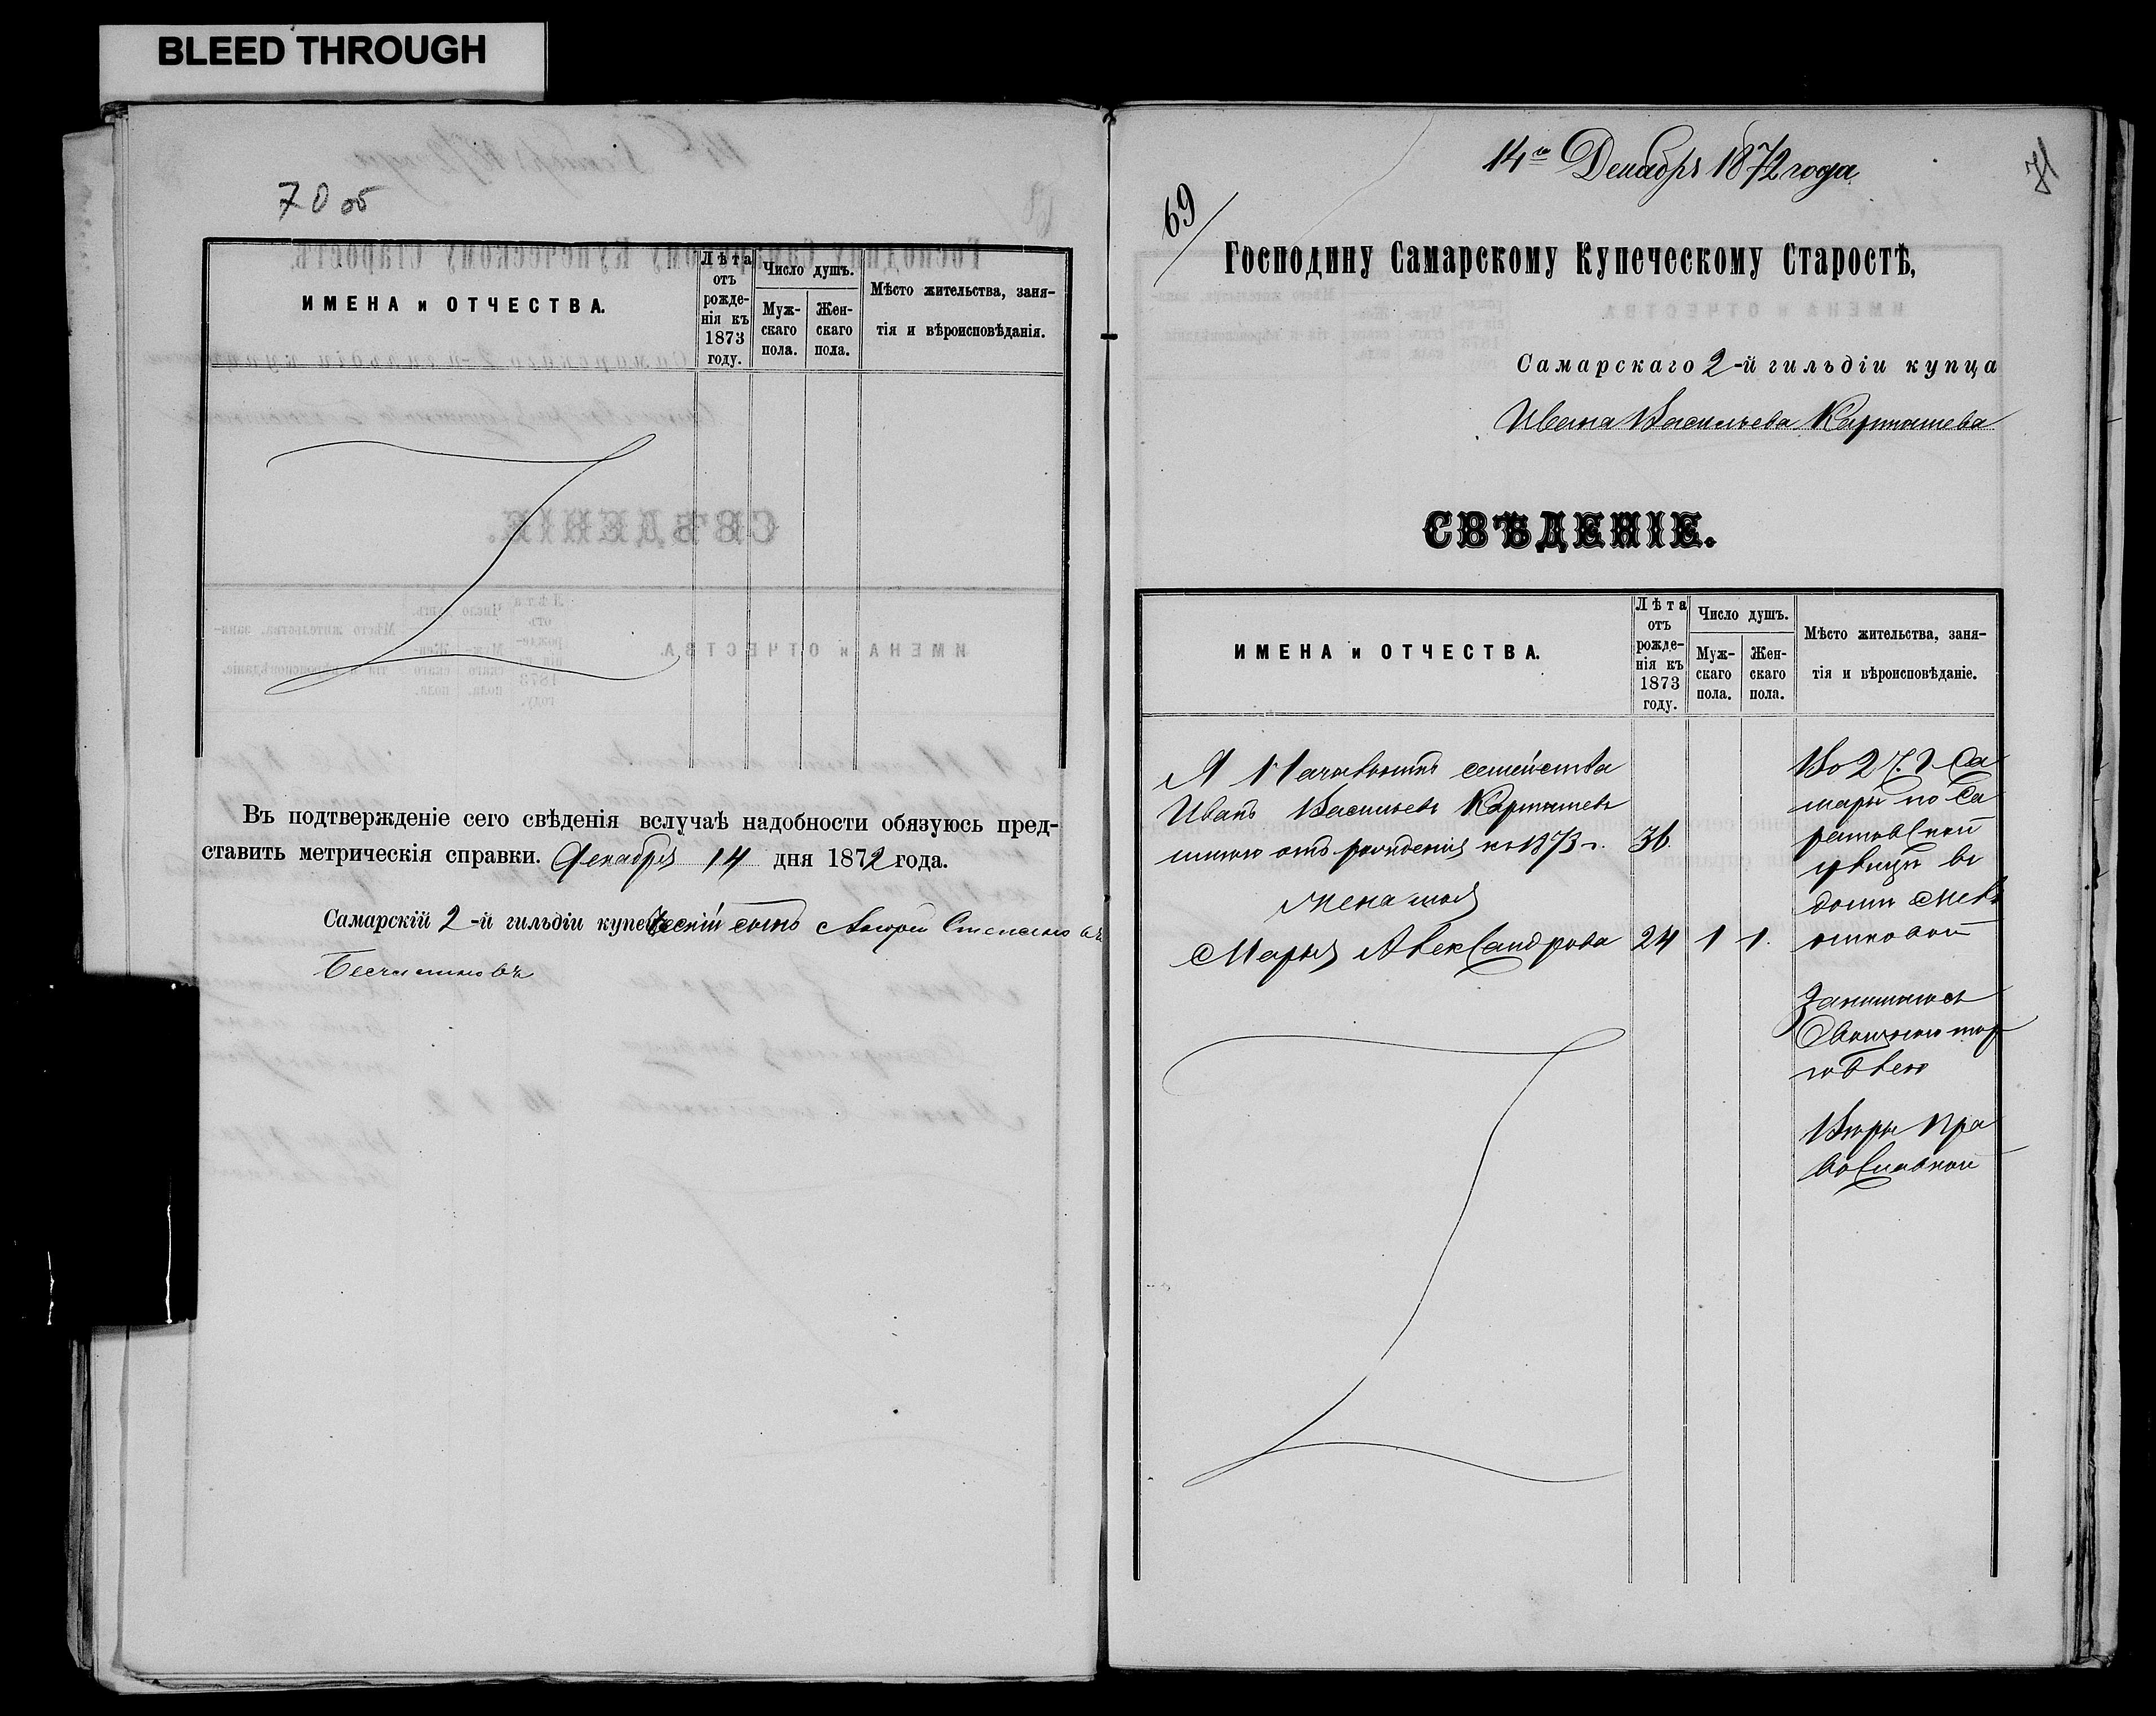 BLEED THROUGH
70 об
ИМЕНА и ОТЧЕСТВА.
Лѣта отъ рожде-нія къ 1873 году.
Число душъ.
Муж-скаго пола.
Жен-скаго пола.
Мѣсто жительства, заня-
тія и вѣроисповѣданія.
Въ подтвержденіе сего свѣденія вслучаѣ надобности обязуюсь пред-
ставить метрическія справки. Декабря 14 дня 1872 года.
Самарскій 2-й гильдіи купеческій сынъ Андрей Степановъ
14го Декабря 1872 года
71
69
Господину Самарскому Купеческому Старостѣ,
Самарскаго 2-й гильдіи купца
Ивана Васильева Карташева
СВѢДЕНІЕ.
ИМЕНА и ОТЧЕСТВА.
Лѣта отъ рожде-нія къ 1873 году.
Число душъ.
Муж-скаго пола.
Жен-скаго пола.
Мѣсто жительства, заня-
тія и вѣроисповѣданіе.
Я семейства
Иванъ Васильевъ Карташевъ
отъ рожденія къ 1873 г. 36.
Жена моя
Марья Александрова 24 1 1.
Во 2 Ч. г. Са
мары по Са
ратовской
улице въ
доме
Занимаюсь
тор
говлею
Веры Пра
вославной